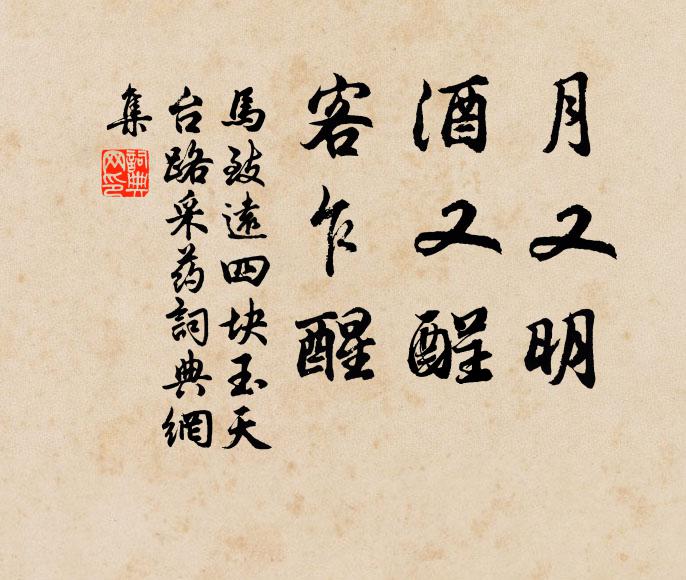 月又明
酒又酲
客乍醒
馬致遠四块玉天
台路采药詞典網
集
詞典
网印